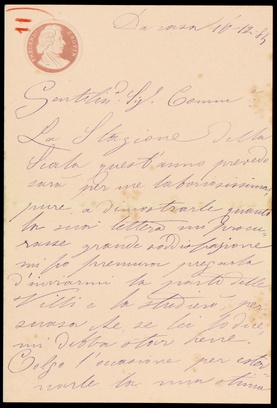 11
Da casa 16-12-84
Gentilin.º Sig. Comm.
La Stagione della
Scala quest'anno prevedo
sarà per me laboriosissima,
pure a dimostrarle quanto
la sua lettera mi procu-
rasse grande soddisfazione
mi fo premura pregarla
d'inviarmi la parte delle
Villi e la studierò per-
suasa che, se lei lo dice,
mi debba star bene.
Colgo l'occasione per ester-
narle la mia stima